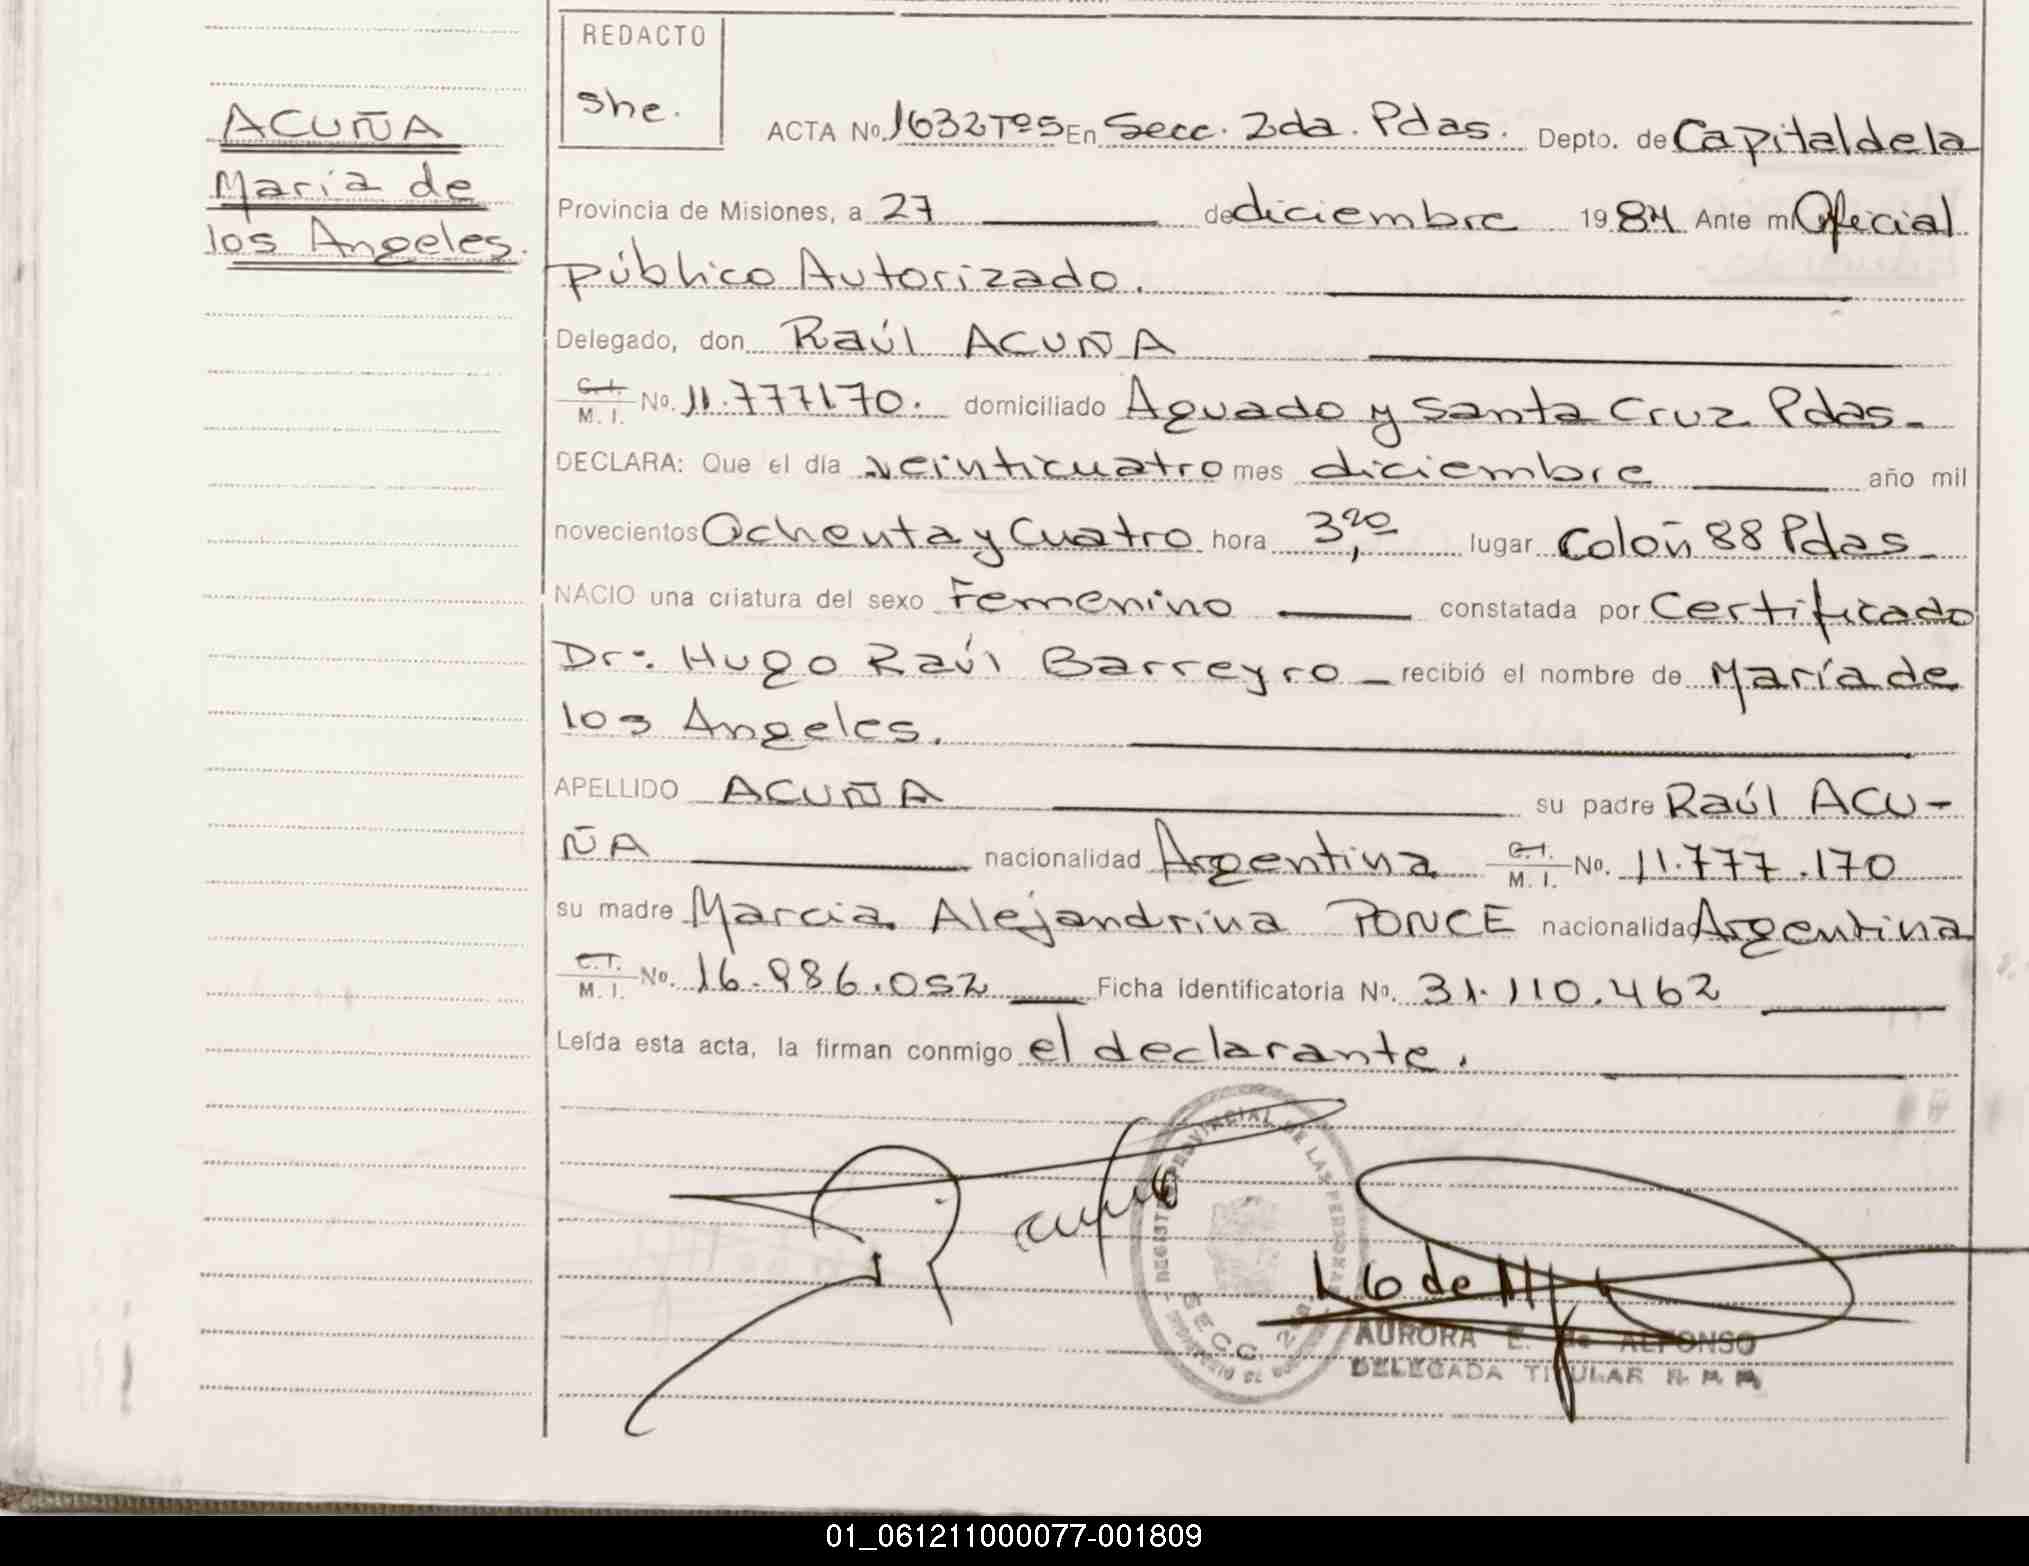 REDACTO
she.
ACUÑA
María de
los Angeles.
ACTA No. 1632 Tº5 En Secc. 2da. Pdas. Depto. de Capital de la
Provincia de Misiones, a 27 de diciembre 1984 Ante mí Oficial
Público Autorizado.
Delegado, don Raúl ACUÑA
C.I. M.I. No. 11.777170. domiciliado Aguado y Santa Cruz Pdas.
DECLARA: Que el día veinticuatro mes diciembre año mil
novecientos Ochenta y Cuatro hora 3,20 lugar Colón 88 Pdas.
NACIO una criatura del sexo Femenino constatada por Certificado
Dr: Hugo Raúl Barreyro recibió el nombre de María de
los Angeles.
APELLIDO ACUÑA su padre Raúl ACU-
ÑA nacionalidad Argentina C.I. M.I. No. 11.777.170
su madre Marcia Alejandrina PONCE nacionalidad Argentina
C.I. M.I. No. 16.986.052 Ficha Identificatoria No. 31.110.462
Leída esta acta, la firman conmigo el declarante.
REGISTRO PROVINCIAL DE LAS PERSONAS
SECC. 2da
AURORA E. de ALFONSO
DELEGADA TITULAR R. P. P.
01_061211000077-001809